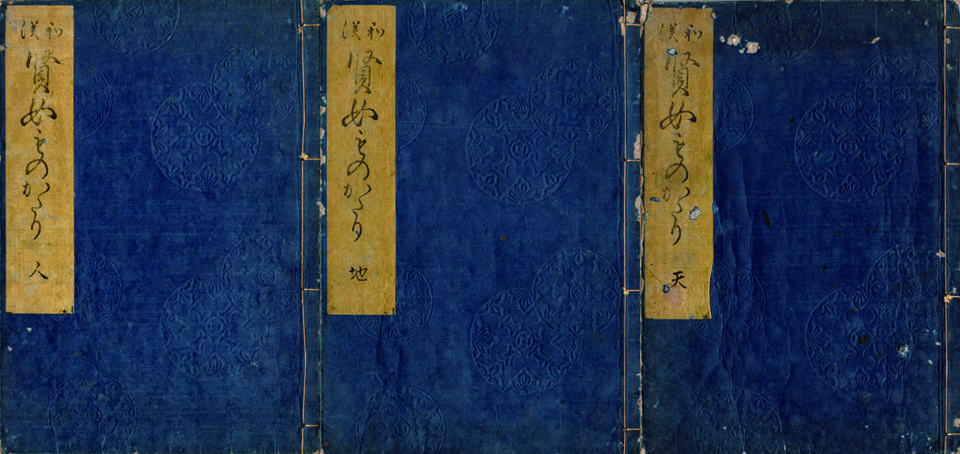 和漢
賢女ものかたり 天
和漢
賢女ものかたり 地
和漢
賢女ものかたり 人